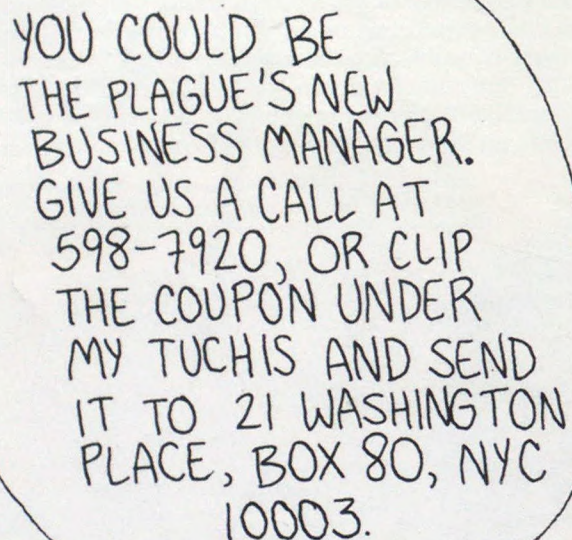 YOU COULD BE
THE PLAGUE'S NEW
BUSINESS MANAGER.
GIVE US A CALL AT
598-7920, OR CLIP
THE COUPON UNDER
MY TUCHIS AND SEND
IT TO 21 WASHINGTON
PLACE, BOX 80, NYC
10003.